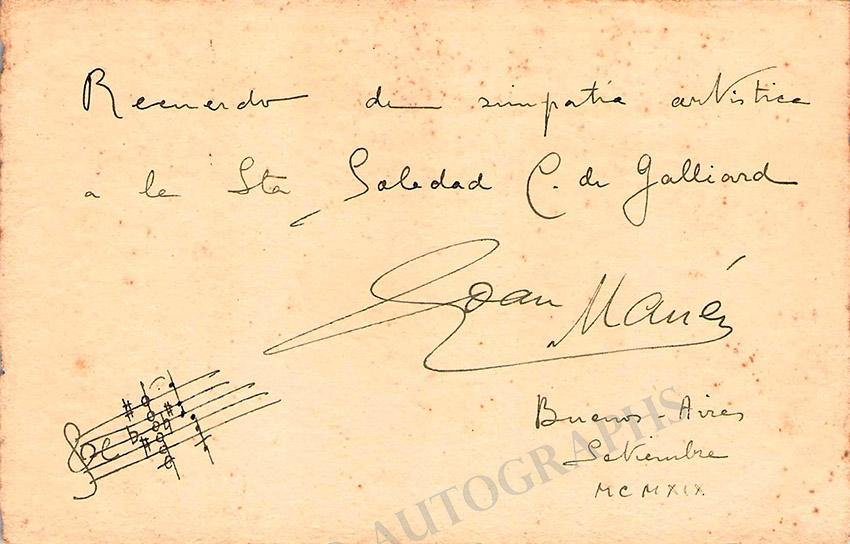 Recuerdo de simpatía artística
a la Sta Soledad C. de Galliard
Joan Manén
Buenos-Aires
Setiembre
MCMXIX
AUTOGRAPHS